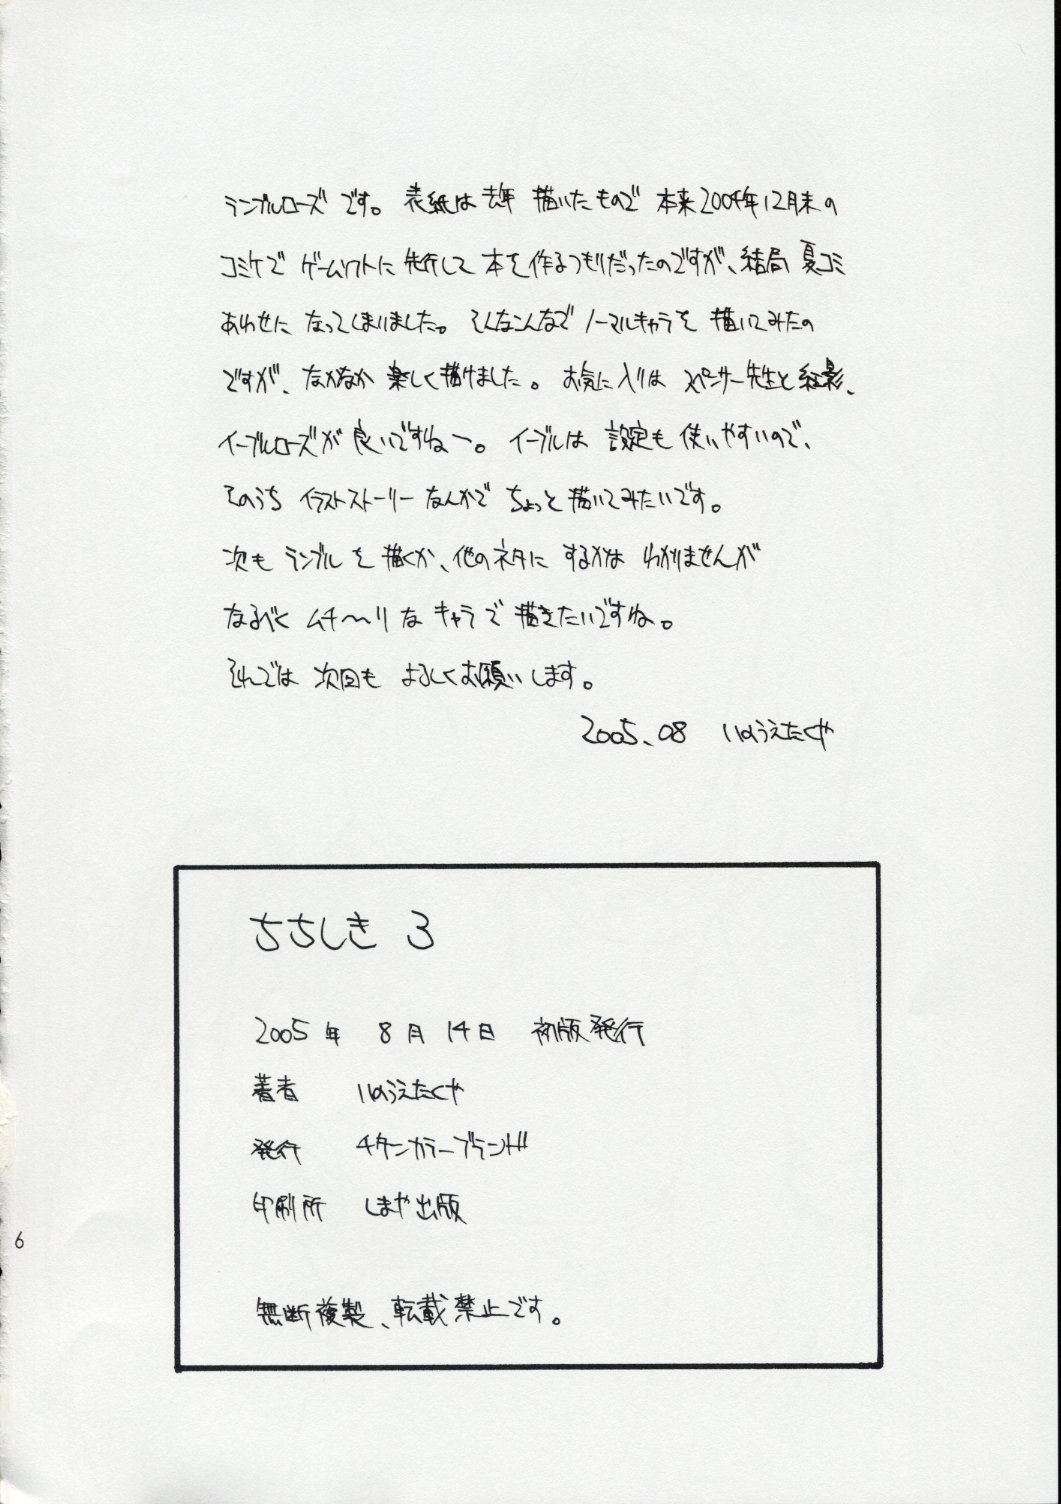 ランブルローズです。表紙は去年描いたもので本来2004年12月末の
コミケでゲームソフトに先行して本を作るつもりだったのですが、結局夏コミ
あわせになってしまいました。そんなこんなでノーマルキャラを描いてみたの
ですが、なかなか楽しく描けました。お気に入りはスペンサー先生と紅影、
イーブルローズが良いですねー。イーブルは設定も使いやすいので、
そのうちイラストストーリーなんかでちょっと描いてみたいです。
次もランブルを描くか、他のネタにするかはわかりませんが
なるべくムチ〜リなキャラで描きたいですね。
それでは次回もよろしくお願いします。
2005、08 いのうえたくや
ちちしき 3
2005年 8月 14日 初版発行
著者 いのうえたくや
発行 チタンカラーブランド
印刷所 しまや出版
無断複製、転載禁止です。
6